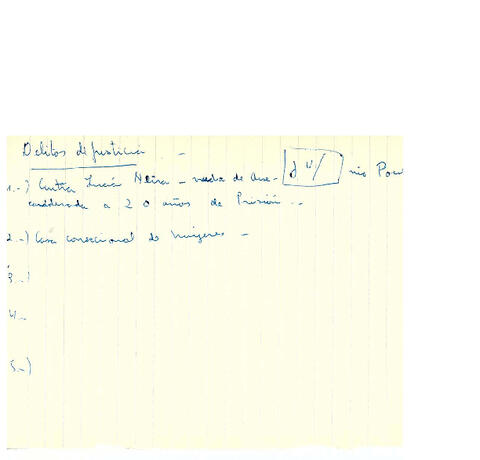 Delitos de justicia -
1.-) Contra Lucía Neira - viuda de
condenada a 20 años de Prisión. -
2.-) Casa correccional de Mujeres -
3.-)
4.-
5.-)